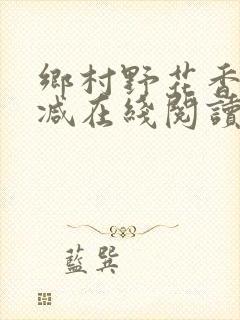 鄉村野花香
减在綫閱讀
藍巽